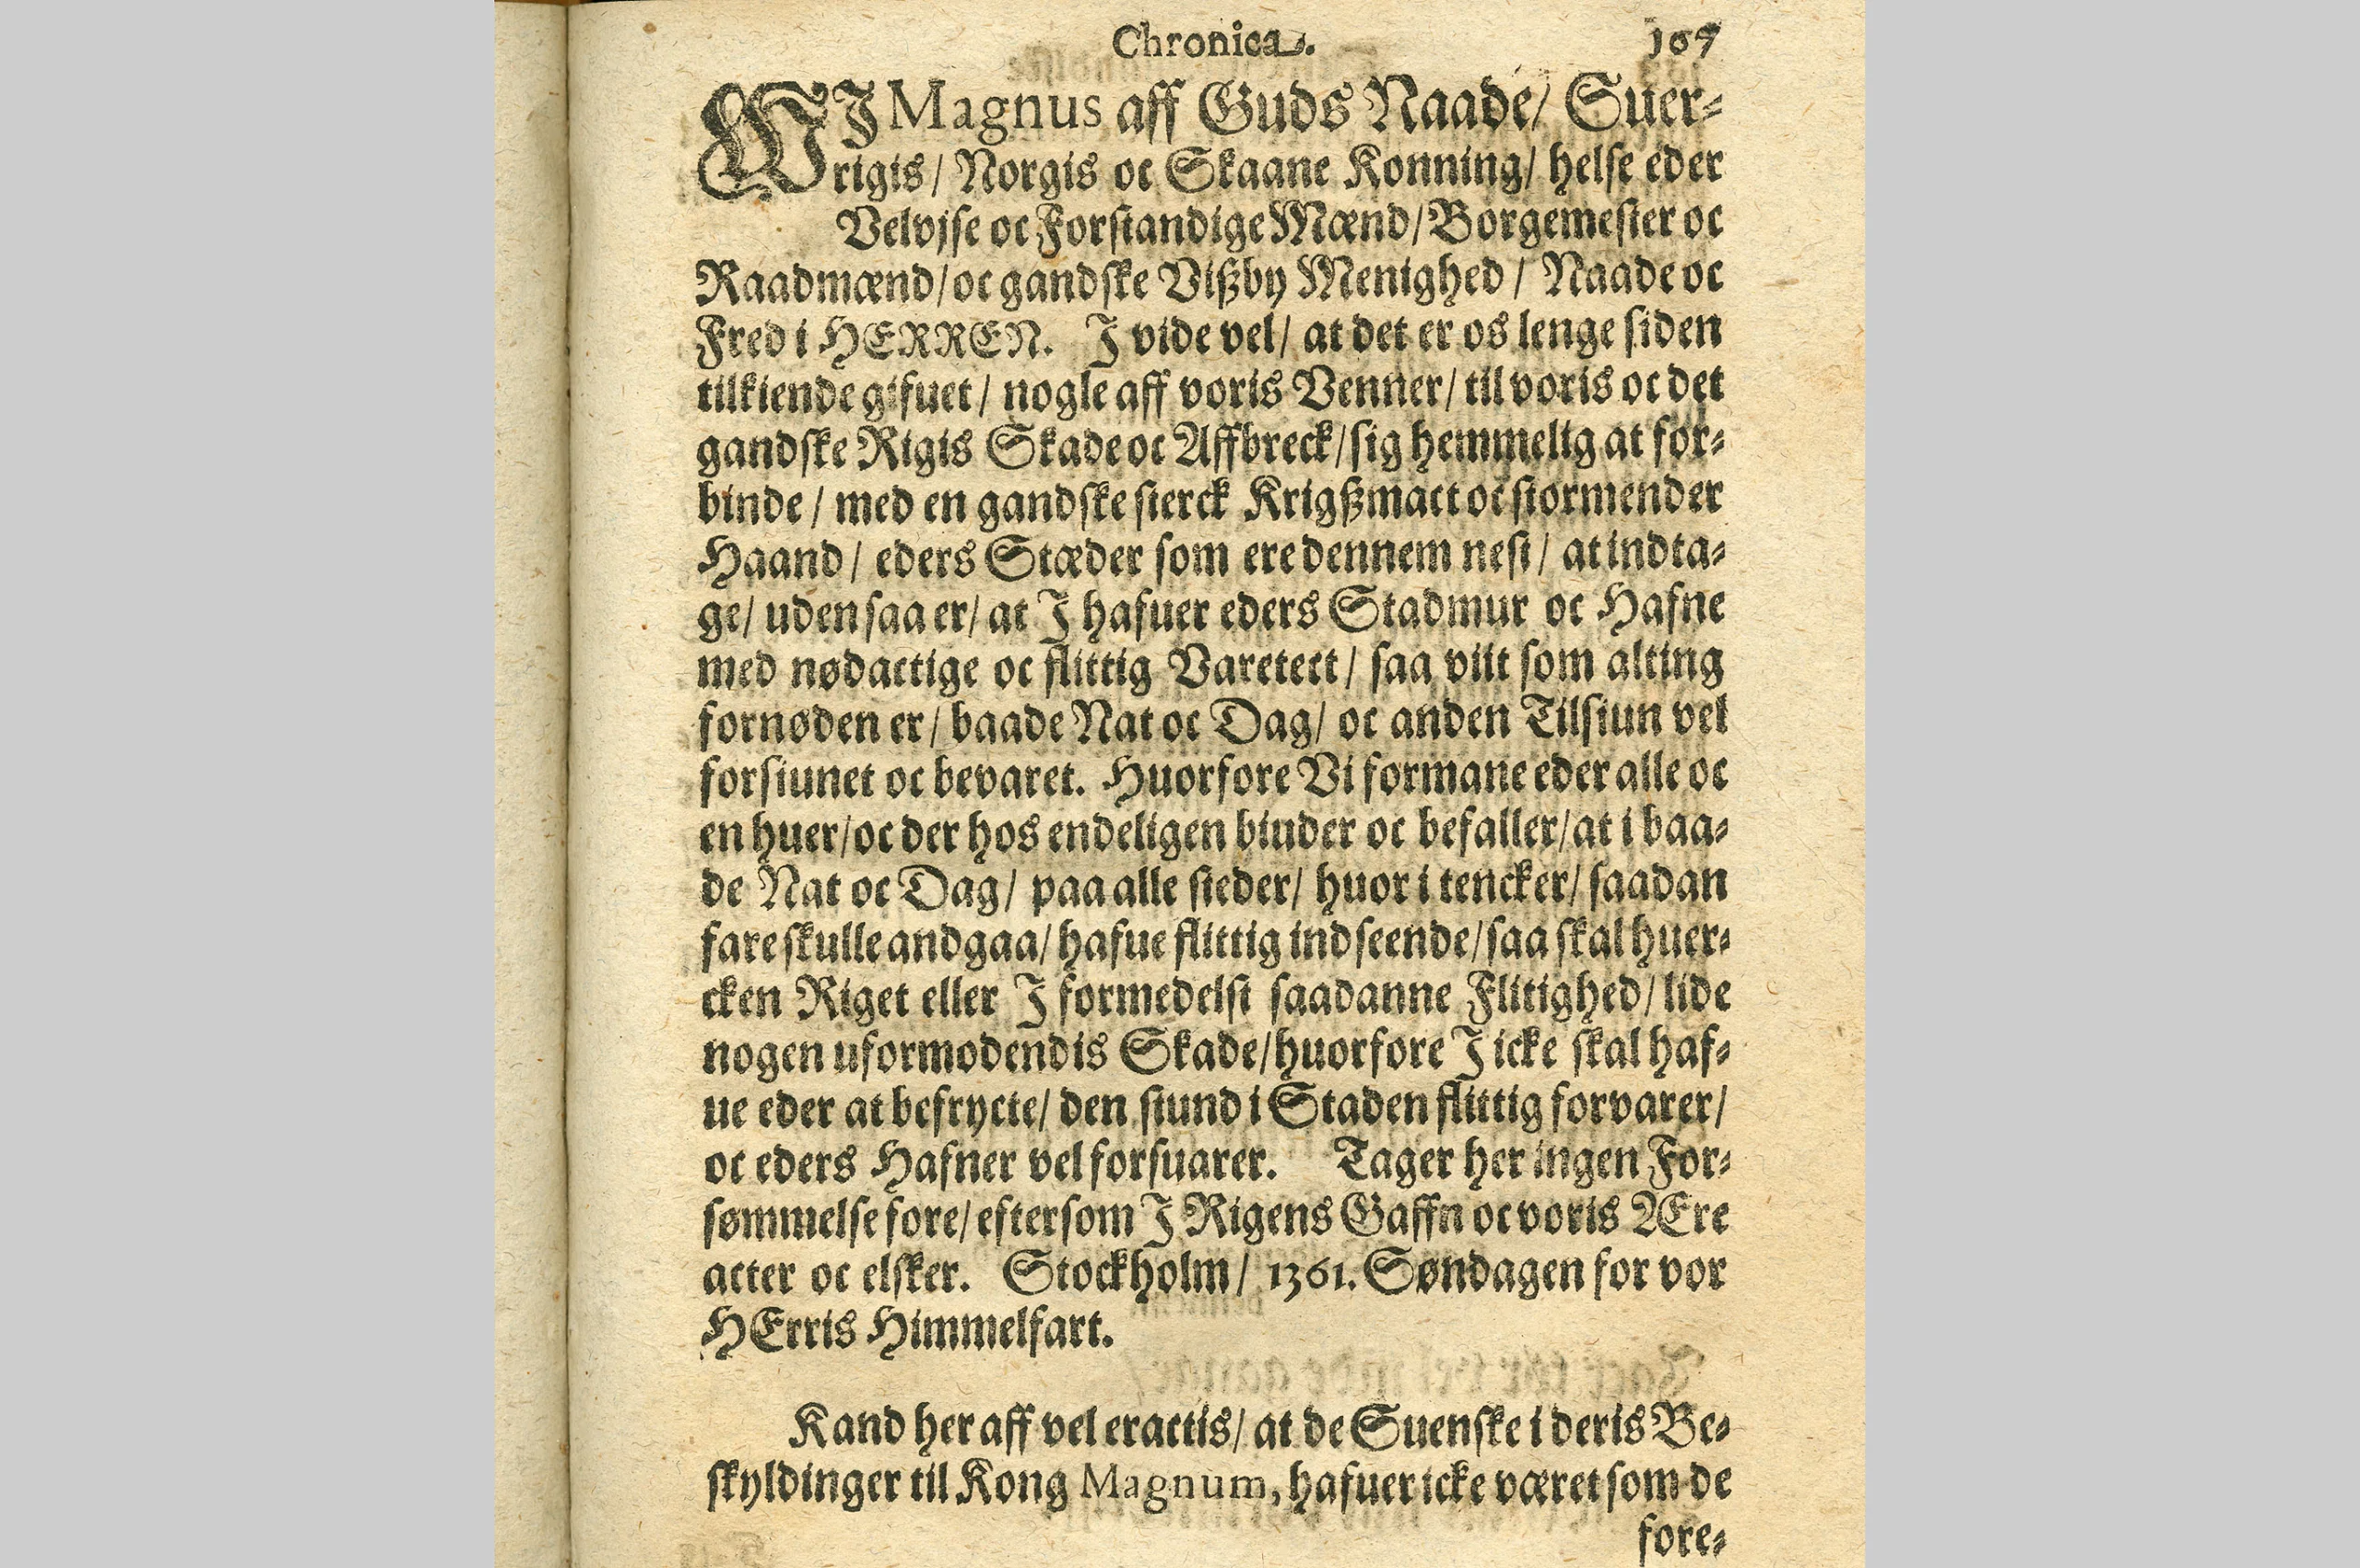 Chronica. 167
WJ Magnus aff Guds Naade/ Suer⸗
rigis/ Norgis oc Skaane Konning/ helse eder
Velvjse oc Forstandige Mænd/ Borgemester oc
Raadmænd/ oc gandske Vißby Menighed/ Naade oc
Fred i HERREN. J vide vel/ at det er os lenge siden
tilkiende gifuet/ nogle aff voris Venner/ til voris oc det
gandske Rigis Skade oc Affbreck/ sig hemmelig at for⸗
binde/ med en gandske sterck Krigßmact oc stormender
Haand/ eders Stæder som ere dennem nest/ at indta⸗
ge/ uden saa er/ at J hafuer eders Stadmur oc Hafne
med nødactige oc flittig Varetect/ saa viit som alting
fornøden er/ baade Nat oc Dag/ oc anden Tilsiun vel
forsiunet oc bevaret. Huorfore Vi formane eder alle oc
en huer/ oc der hos endeligen biuder oc befaller/ at i baa⸗
de Nat oc Dag/ paa alle steder/ huor i tencker/ saadan
fare skulle andgaa/ hafue flittig indseende/ saa skal huer⸗
cken Riget eller J formedelst saadanne Flitighed/ lide
nogen uformodendis Skade/ huorfore J icke skal haf⸗
ue eder at befrycte/ den stund i Staden flittig forvarer/
oc eders Hafner vel forsuarer. Tager her ingen For⸗
sømmelse fore/ eftersom J Rigens Gaffn oc voris Ære
acter oc elsker. Stockholm/ 1361. Søndagen for vor
HErris Himmelfart.
Kand her aff vel eractis/ at de Suenske i deris Be⸗
skyldinger til Kong Magnum, hafuer icke været som de
fore⸗